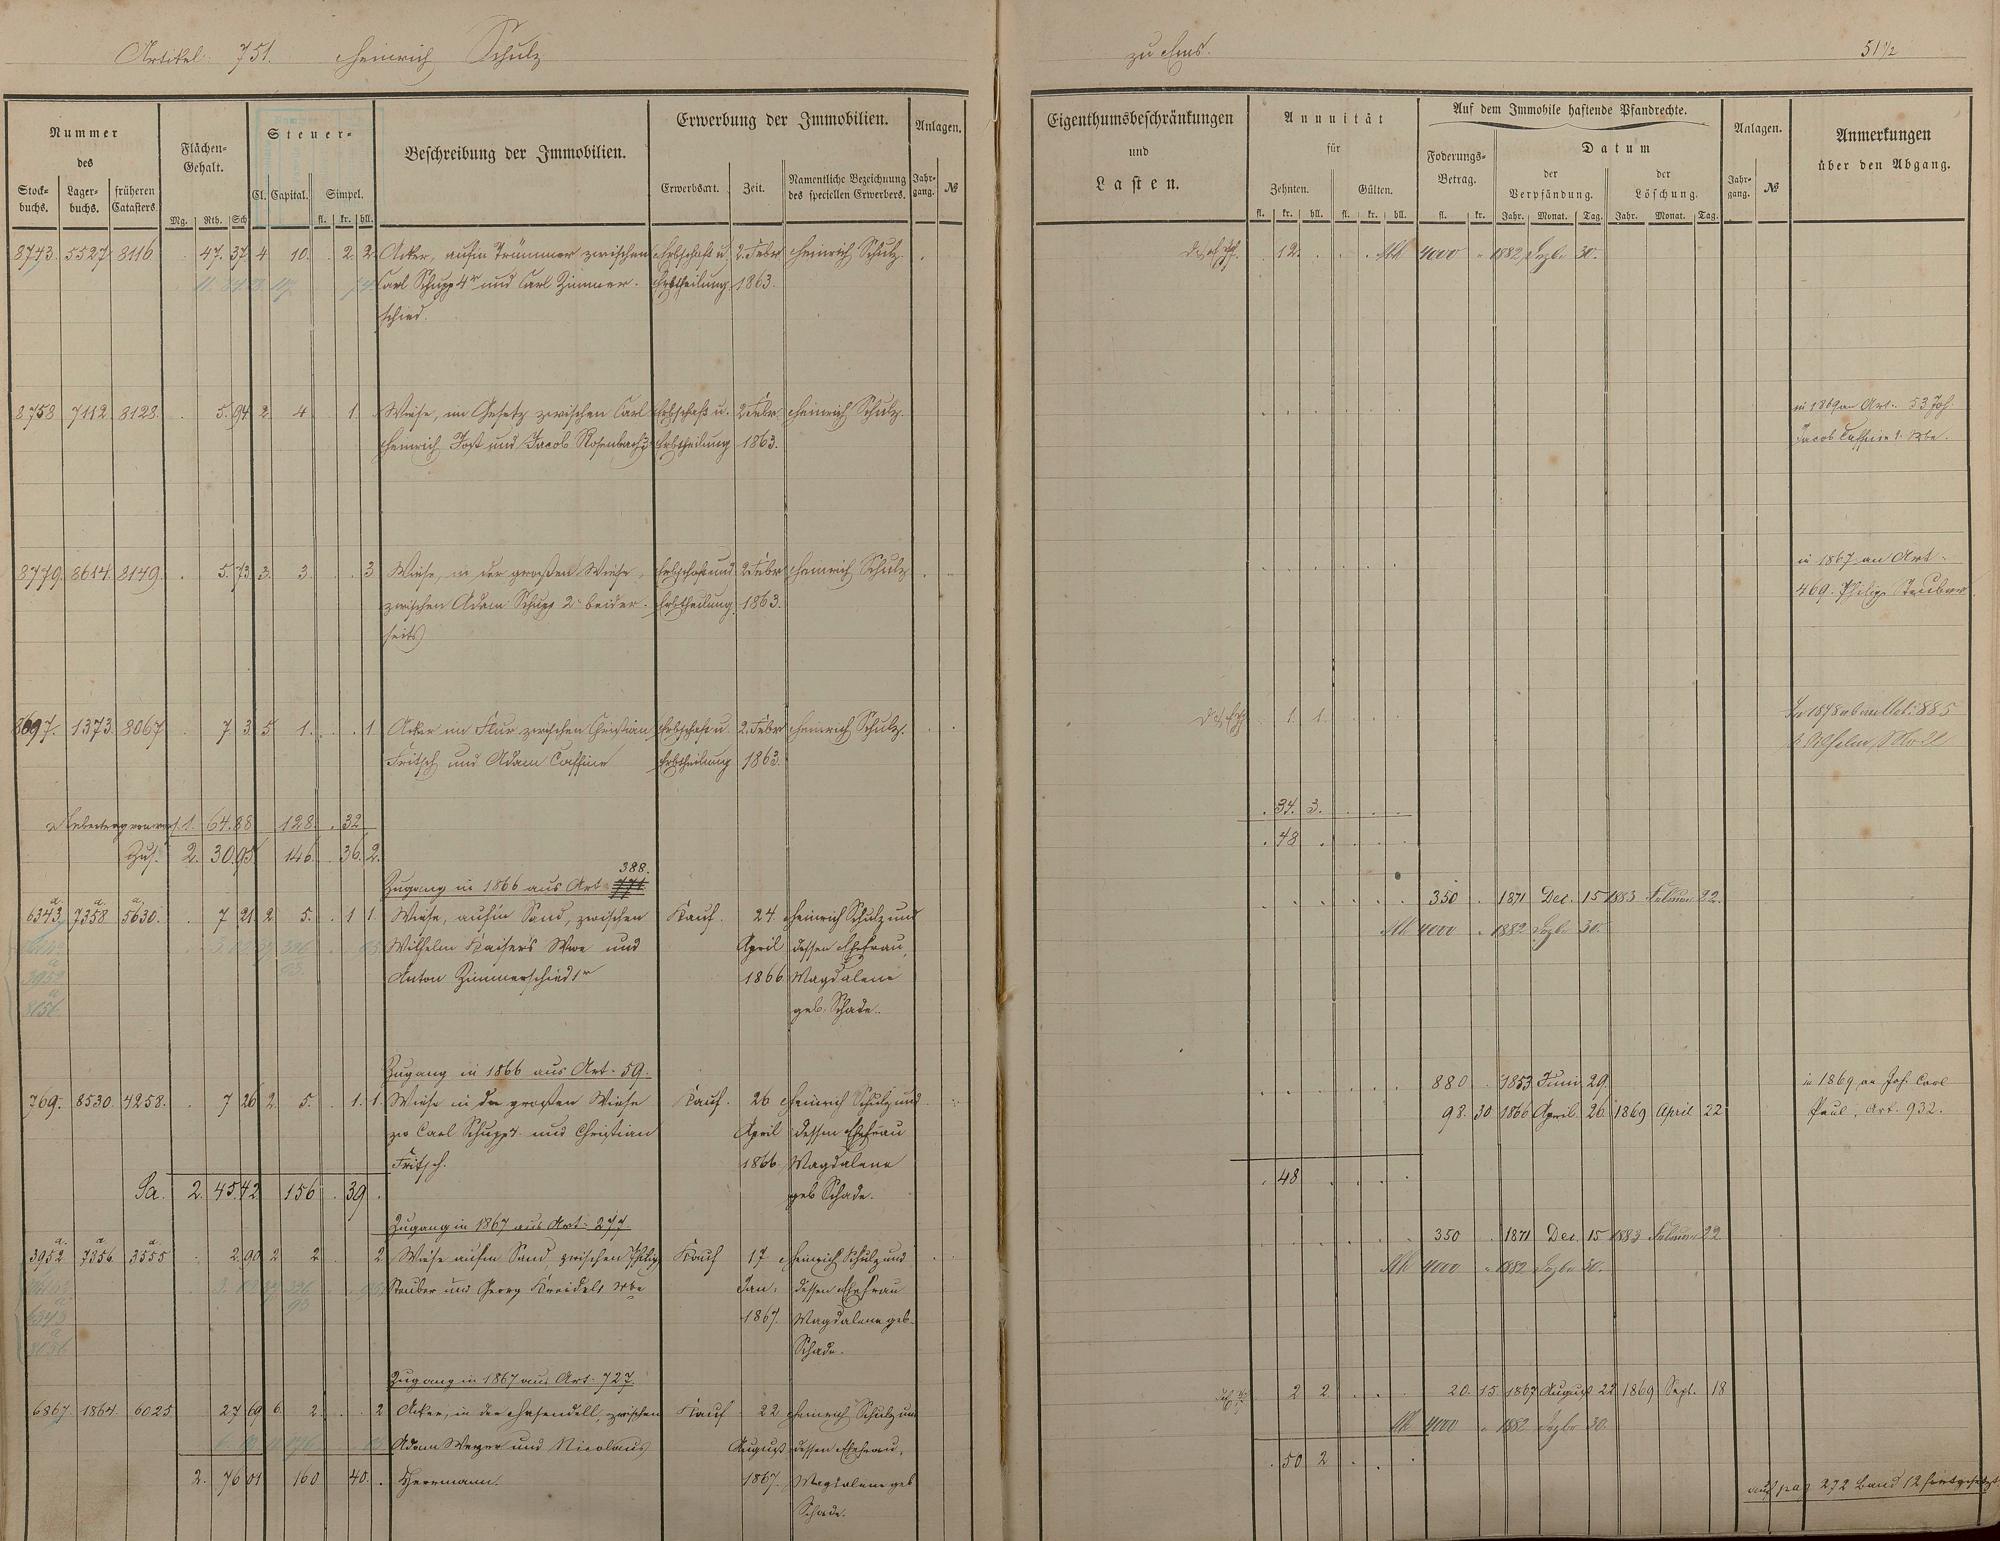 Artikel: 751. Heinrich Schulz
zu Ems.
51 1/2
Nummer des
Stockbuchs. Lagerbuchs. früheren Catasters.
Flächen-Gehalt.
Mg. Rth. Sch
Steuer-
Cl. Capital. Simpel.
fl. kr. hll.
Beschreibung der Immobilien.
Erwerbung der Immobilien.
Erwerbsart. Zeit. Namentliche Bezeichnung des speciellen Erwerbers.
Anlagen.
Jahrgang. №
Eigenthumsbeschränkungen
und
Lasten.
Annuität
für
Zehnten. Gülten.
fl. kr. hll. fl. kr. hll.
Auf dem Immobile haftende Pfandrechte.
Foderungs-Betrag.
fl. kr.
Datum
der Verpfändung. der Löschung.
Jahr. Monat. Tag. Jahr. Monat. Tag.
Anlagen.
Jahrgang. №
Anmerkungen
über den Abgang.
8743. 5527 8116 . 47. 37 4 10. . 2. 2. Acker, aufm Trümmer zwischen Erbschaft u. 2. Febr Heinrich Schulz. . 12. . . . Mk 4000 " 1882 Dezbr 30.
Carl Schupp 4r und Carl Zimmer- Erbtheilung 1863.
schied.
8758 7112. 8128. . 5. 94 2. 4 . 1. Wiese, im Gesetz zwischen Carl Erbschaft u. 2 Febr. Heinrich Schulz. in 1869 an Art. 53 Joh.
Heinrich Jost und Jacob Rosenbach Erbtheilung 1863. Jacob Caffine
8779. 8614. 8149. . 5. 73 3. 3. . . 3 Wiese, in der großen Wiese, Erbschaft und 2 Febr Heinrich Schulz in 1867 an Art.
zwischen Adam Schupp 2r beider- Erbtheilung 1863. 469. Philipp Steuber
seits
8697. 1373. 8067 . 7 3. 5 1. . . 1 Acker im Flur zwischen Christian Erbschaft u. 2. Febr Heinrich Schulz. . 1. 1. In 1878 Art. 885
Fritsch und Adam Caffine Erbtheilung 1863. Wilhelm
Uebertrag von vorf. 1. 64. 88 128. . 32 . 34. 3.
Zus. 2. 30. 95 146 . 36. 2. . 48
Zugang in 1866 aus Art. 388.
6343. 7358 5630. . 7 21. 2. 5. . 1 1. Wiese, aufm Sand, zwischen Kauf. 24. Heinrich Schulz und 350 . 1871 Dec. 15 1883 Februar 22.
Wilhelm Kaisers Wwe und April dessen Ehefrau, Mk 4000 " 1882 Dezbr 30.
3952
Anton Zimmerschied 1r 1866 Magdalene
8056
geb. Schade.
Zugang in 1866 aus Art. 59.
769. 8530. 4258. . 7 26 2 5. . 1. 1. Wiese in der großen Wiese Kauf. 26 Heinrich Schulz und 880 . 1853 Juni 29. in 1869 an Joh. Carl
zw Carl Schupp 4. und Christian April dessen Ehefrau 98. 30 1866 April 26 1869 April 22 Paul, Art. 932.
Fritsch. 1866. Magdalene
Sa. 2. 45. 42 156 . 39 . geb Schade. . 48
Zugang in 1867 aus Art. 277
3952 7356. 3555 . 2. 90 2 2 . . 2 Wiese aufm Sand, zwischen Philipp Kauf 17 Heinrich Schulz und 350 . 1871 Dec. 15 1883 Februar 22
Steuber und Georg Kreidels Wbe Jan. dessen Ehefrau Mk 4000 " 1882 Dezbr 30.
6343
1867. Magdalene geb.
8056
Schade.
Zugang in 1867 aus Art. 727.
6867. 1864. 6025 27 69 6. 2. . . 2 Acker, in der Hasendell, zwischen Kauf . 22 Heinrich Schulz und 2 2 20. 15 1867 August 22 1869 Sept. 18
Adam Weyer und Nicolaus August dessen Ehefrau, Mk 4000 " 1882 Dezbr 30.
2. 76 01 160 40. . Herrmann. 1867. Magdalene geb . 50 2
Schade.
auf pag 272 Band 12 fortgesetzt.